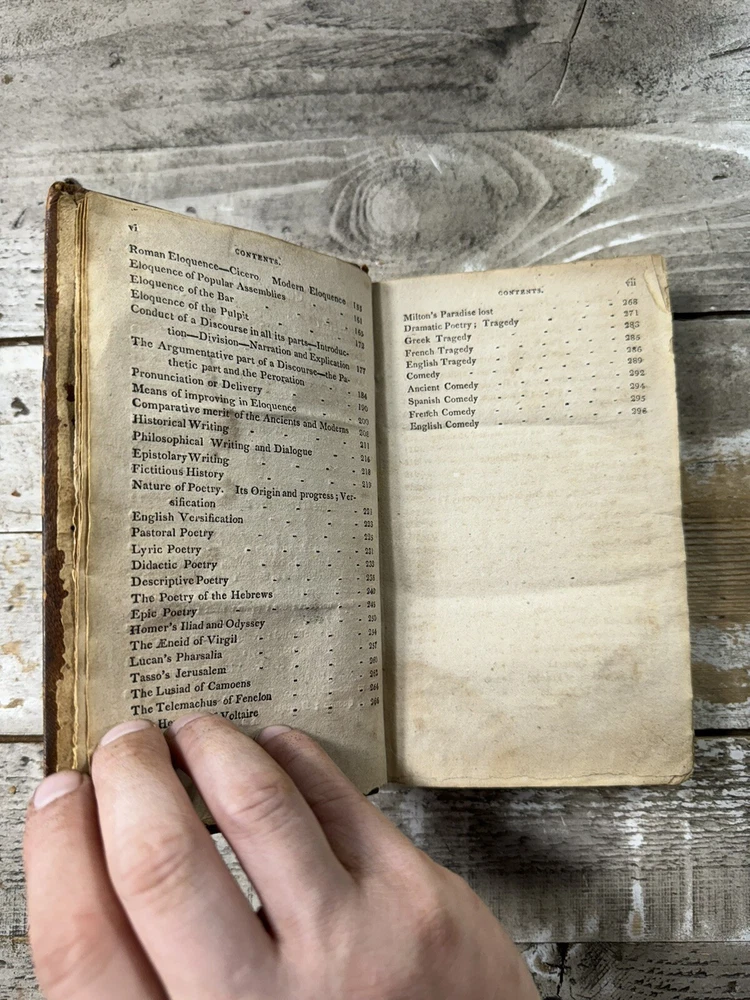 vi
CONTENTS.
Roman Eloquence—Cicero Modern Eloquence
Eloquence of Popular Assemblies - - 161
Eloquence of the Bar - - - -
Eloquence of the Pulpit - - - - 173
Conduct of a Discourse in all its parts—Introduc-
tion—Division—Narration and Explication 177
The Argumentative part of a Discourse—the Pa-
thetic part and the Peroration - - 184
Pronunciation or Delivery - - - 190
Means of improving in Eloquence - - 200
Comparative merit of the Ancients and Moderns
Historical Writing - - - - 211
Philosophical Writing and Dialogue - - 216
Epistolary Writing - - - - 218
Fictitious History - - - - 219
Nature of Poetry. Its Origin and progress; Ver-
sification - - - - 221
English Versification - - - - 223
Pastoral Poetry - - - -
Lyric Poetry - - - - 231
Didactic Poetry - - - - 233
Descriptive Poetry - - - -
The Poetry of the Hebrews - - - 240
Epic Poetry - - - -
Homer's Iliad and Odyssey - - - 250
The Æneid of Virgil - - - 254
Lucan's Pharsalia - - - - 257
Tasso's Jerusalem - - - -
The Lusiad of Camoens - - -
The Telemachus of Fenelon - - 264
Voltaire - - 266
vii
CONTENTS.
Milton's Paradise lost - - - - 268
Dramatic Poetry; Tragedy - - - 271
Greek Tragedy - - - - 283
French Tragedy - - - - 285
English Tragedy - - - - 286
Comedy - - - - 289
Ancient Comedy - - - - 292
Spanish Comedy - - - - 294
French Comedy - - - - 295
English Comedy - - - - 296